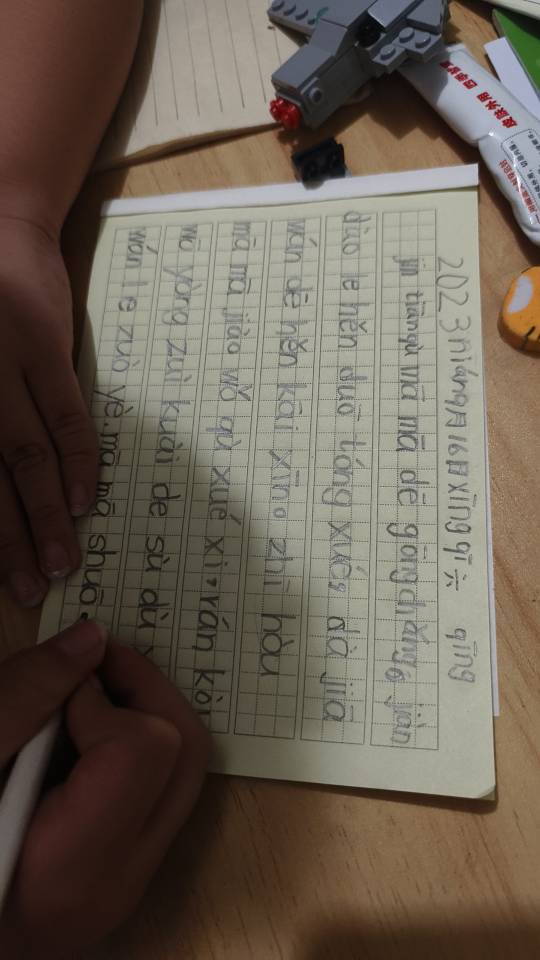 2023niáng月16日xīng qī 六 qīng
jīn tiān qù mā mā dē gōng chǎng。jiàn
dào le hěn duō tóng xué, dà jiā
wán dē hěn kāi xīn。zhī hòu
mā mā jiào wǒ qù xué xí,rán hòu
wǒ yòng zuì kuài de sù dù
wán le zuò yè.mā mā shuō
皮肤外用